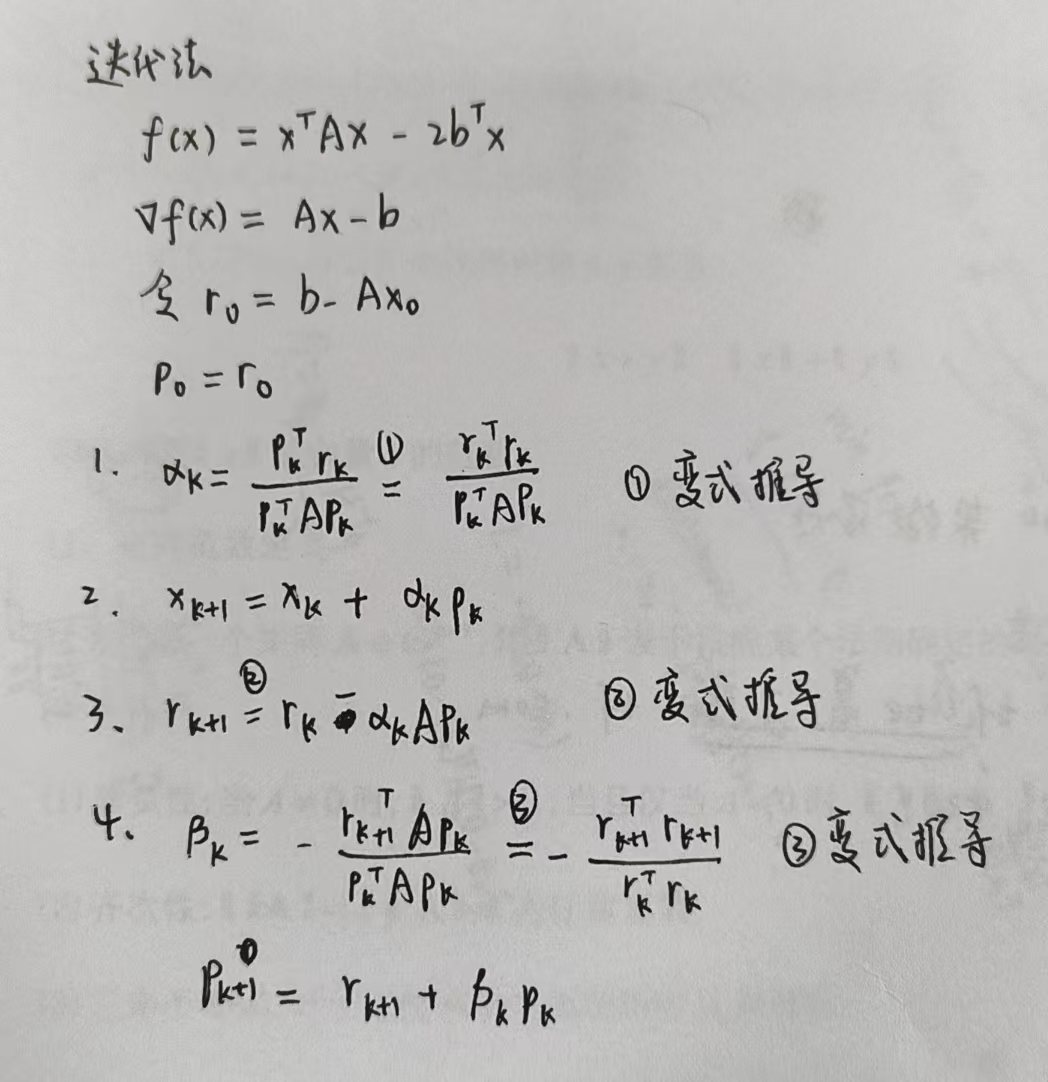 迭代法
f(x) = xᵀAx - 2bᵀx
∇f(x) = Ax - b
令 r₀ = b - Ax₀
p₀ = r₀
1. αₖ = \frac{pₖᵀ rₖ}{pₖᵀ A pₖ} ①= \frac{rₖᵀ rₖ}{pₖᵀ A pₖ} ① 变式推导
2. xₖ₊₁ = xₖ + αₖ pₖ
3、 rₖ₊₁ ②= rₖ - αₖ A pₖ ② 变式推导
4、 βₖ = - \frac{rₖ₊₁ᵀ A pₖ}{pₖᵀ A pₖ} ③= - \frac{rₖ₊₁ᵀ rₖ₊₁}{rₖᵀ rₖ} ③ 变式推导
pₖ₊₁ = rₖ₊₁ + βₖ pₖ